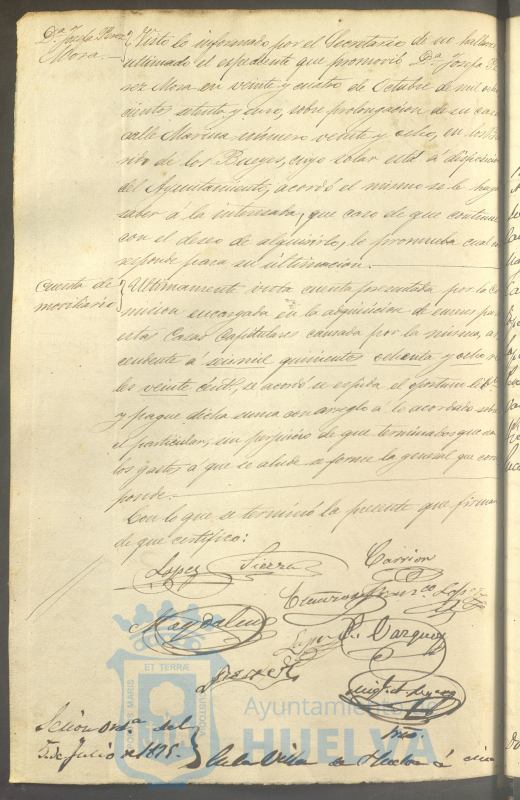 Dª Josefa Perez
Mora
Visto lo informado por el Secretario de no hallarse
ultimado el espediente que promovió Dª Josefa Pe
rez Mora en veinte y cuatro de Octubre de mil ocho
cientos setenta y cuatro, sobre prolongacion de su casa
calle Marina número veinte y ocho, en
de los Bueyes, cuyo solar está á disposicion
del Ayuntamiento, acordó el mismo se le haga
saber á la interesada, que caso de que continue
con el deseo de adquirirlo, lo promueba cual
responde para su ultimacion.
Cuenta de
moviliario
Ultimamente vista cuenta presentada por la Co
mision encargada en la adquisicion de para
estas Casas Capitulares causada por la misma, as
cendente á seis mil quinientos ochenta y ocho rea
les veinte cénts, se acordó se espida el oportuno lib.
y pague dicha suma con arreglo á lo acordado sobre
el particular, sin perjuicio de que terminados que sean
los gastos á que se alude se forme la general que corres
ponde.
Con lo que se terminó la presente que firman
de que certifico:
Lopez Sierra Carrion
Magdalena
Vazquez
ET TERRÆ
MARIS
CUSTODIA
Ayuntamiento de
HUELVA
Srio.
Sesion Ordª del
5 de Julio de 1875.
En la Villa de Huelva á cinco